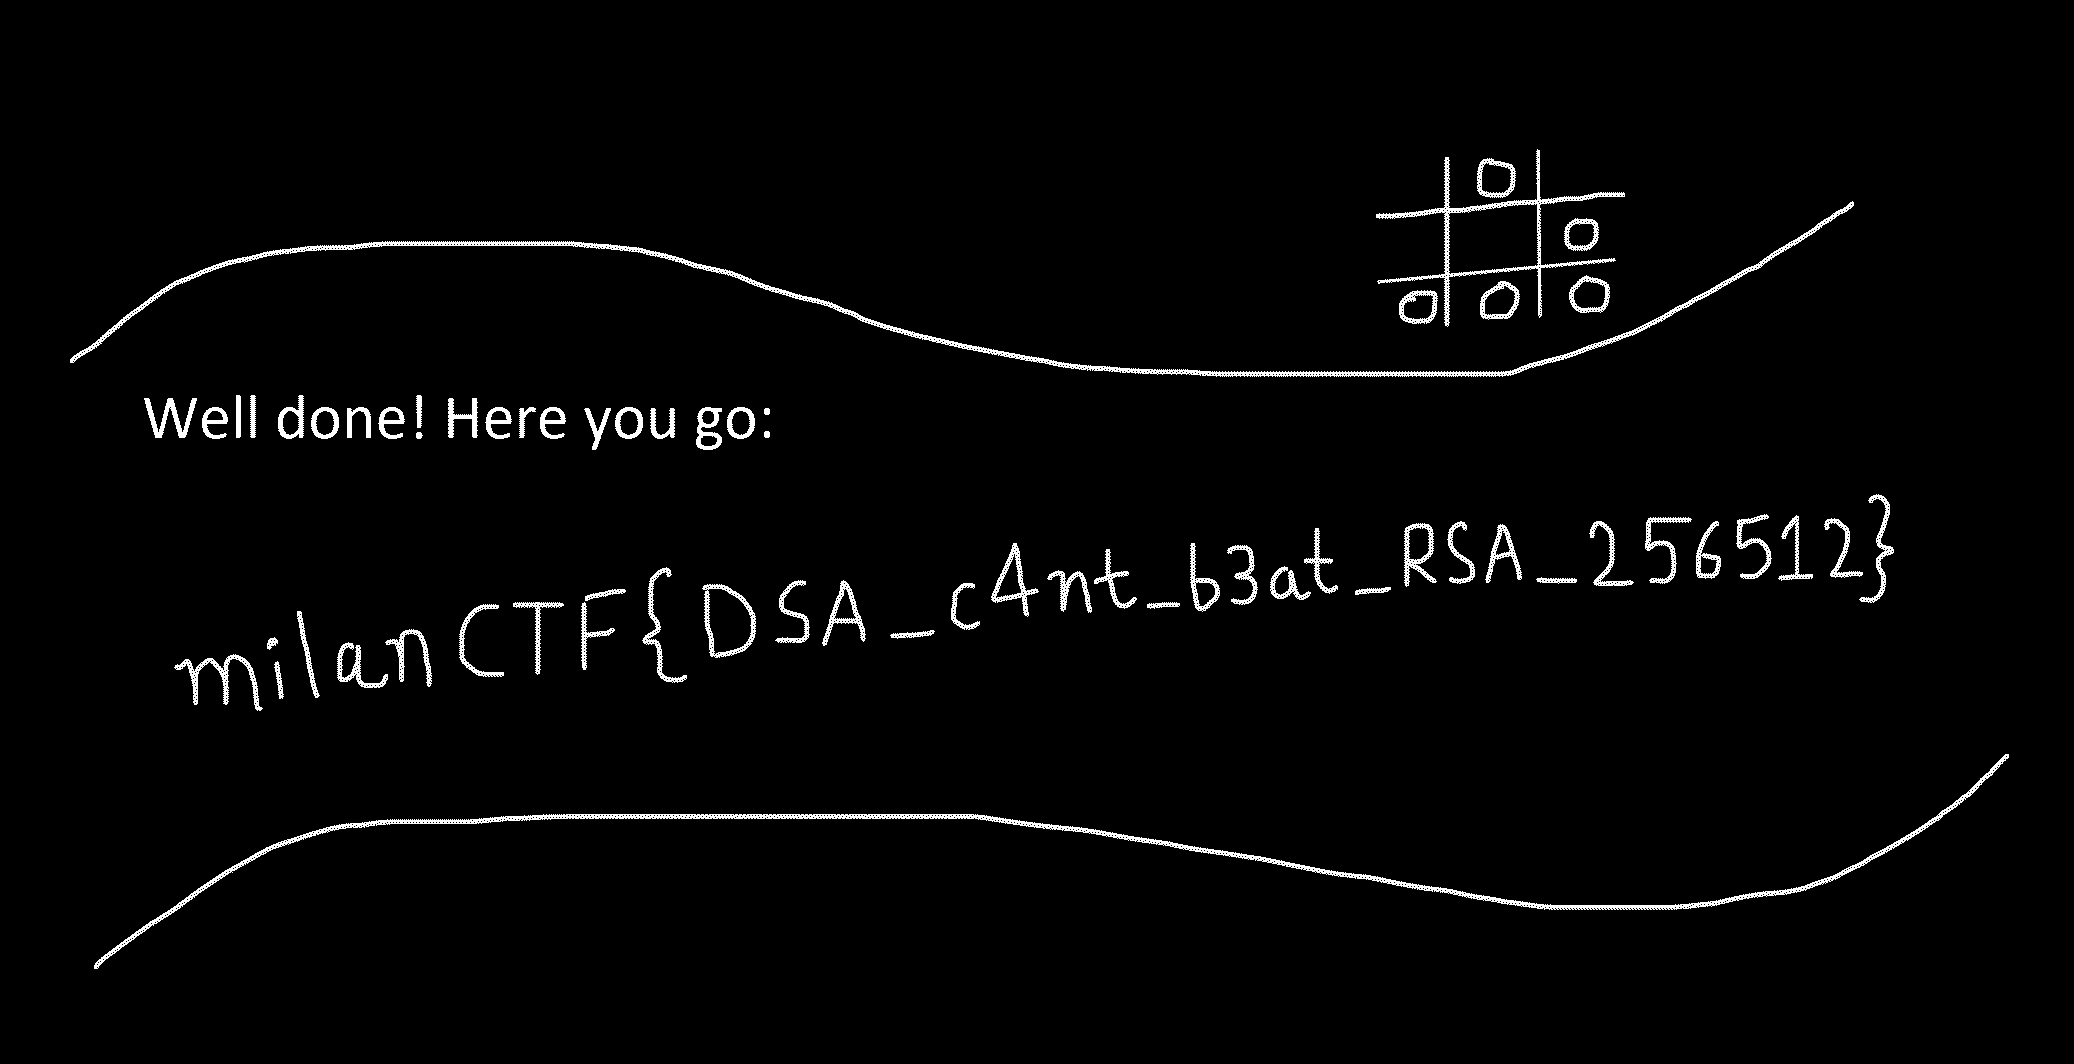 Well done! Here you go:
milanCTF{DSA_c4nt_b3at_RSA_256512}